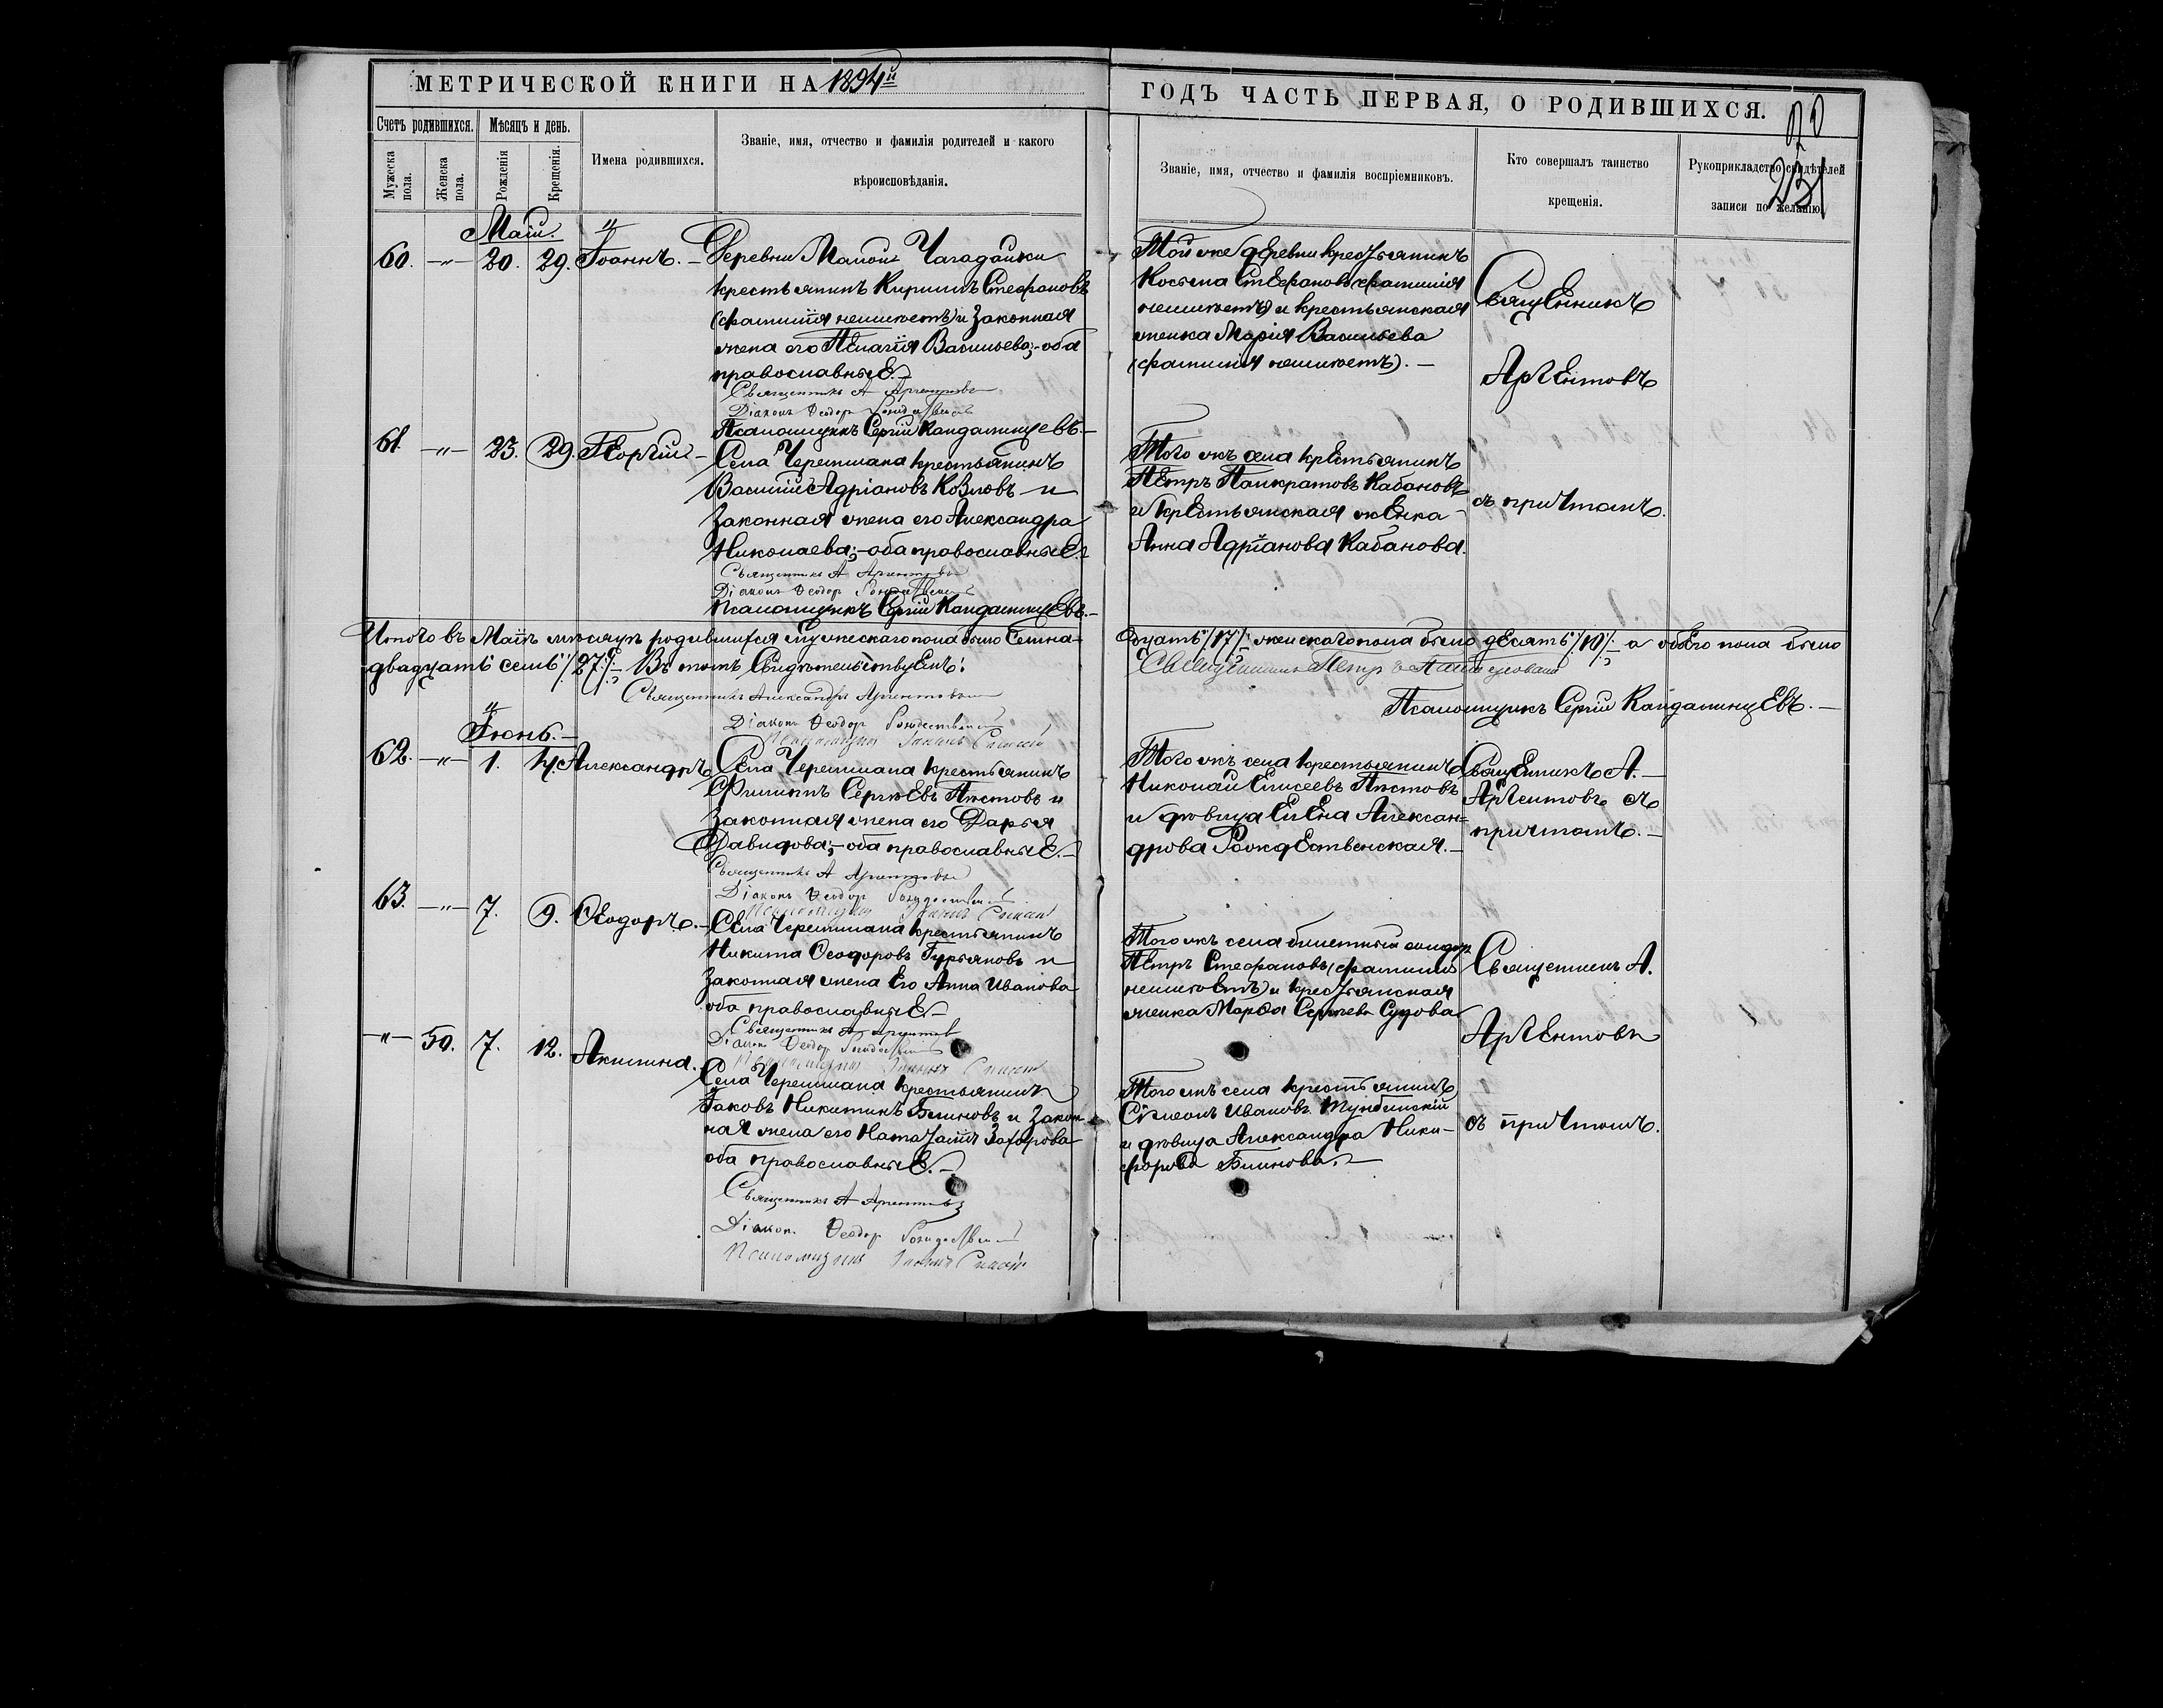 МЕТРИЧЕСКОЙ КНИГИ НА 1894й
Счетъ родившихся.
Мѣсяцъ и день.
Мужеска пола.
Женска пола.
Рожденія
Крещенія.
Имена родившихся.
Званіе, имя, отчество и фамилія родителей и какого
вѣроисповѣданія.
Маій.
60. —„— 20. 29. Іоаннъ. —
Деревни Малой Чагадайки
крестьянинъ Кириллъ Стефановъ
(фамиліія неимѣетъ) и законная
жена его Пелагія Васильева; – оба
православные. —
Священникъ А Аргентовъ
Діаконъ Ѳеодор Рождественскій
Псаломщикъ Сергій Кандалинцевъ. —
61. —„— 23. 29. Георгій —
Села Черемшана крестьянинъ
Василій Адріановъ Козловъ и
законная жена его Александра
Николаева; – оба православные. —
Священникъ А Аргентовъ
Діаконъ Ѳеодор Рождественскій
Псаломщикъ Сергій Кандалинцевъ. —
Итого въ Маіѣ мѣсяцѣ родившихся мужескаго пола было семна-
двадцать семь /27/. — Въ томъ свидѣтельствуемъ:
Священникъ Александръ Аргентовъ
Діаконъ Ѳеодор Рождественскій
Псаломщикъ
Іюнь. —
62. —„— 1. 4. Александръ
Села Черемшана крестьянинъ
Филиппъ Сергѣевъ Пѣстовъ и
законная жена его Дарья
Давидова; – оба православные. —
Священникъ А Аргентовъ
Діаконъ Ѳеодор Рождественскій
Псаломщикъ
63. —„— 7. 9. Ѳеодоръ. —
Села Черемшана крестьянинъ
Никита Ѳеодоровъ Гурьяновъ и
законная жена его Анна Иванова
оба православные —
Священникъ А Аргентовъ
Діаконъ Ѳеодор Рождественскій
Псаломщикъ
—„— 50. 7. 12. Акилина.
Села Черемшана крестьянинъ
Іаковъ Никитинъ Блиновъ и закон-
ная жена его Наталія Захарова
оба православные. —
Священникъ А Аргентовъ
Діаконъ Ѳеодор Рождественскій
Псаломщикъ
ГОДЪ ЧАСТЬ ПЕРВАЯ, О РОДИВШИХСЯ.
231
Званіе, имя, отчество и фамилія воспріемниковъ.
Кто совершалъ таинство
крещенія.
Рукоприкладство свидѣтелей
записи по желанію.
Той же деревни крестьянинъ
Косьма Стефановъ (фамилія
неимѣетъ) и крестьянская
женка Марія Васильева
(фамилія неимѣетъ). —
Священникъ
Аргентовъ
съ причтомъ.
Того жъ села крестьянинъ
Петръ Панкратовъ Кабановъ
и крестьянская женка
Анна Адріанова Кабанова.
дцать /17/. женскаго пола было десять /10/. а обоего пола было
Священникъ Петръ
Псаломщикъ Сергій Кандалинцевъ. —
Того жъ села крестьянинъ
Николай Елисеевъ Пѣстовъ
и дѣвица Елена Алексан=
дрова Рождественская. —
Священникъ А. —
Аргентовъ съ
причтомъ. —
Того жъ села билетный солдатъ
Петръ Стефановъ (фамилія
неимѣетъ) и крестьянская
женка Марѳа Сергѣева Сузова
Священникъ А.
Аргентовъ
съ причтомъ.
Того жъ села крестьянинъ
Сѵмеонъ Ивановъ Тумбинскій
и дѣвица Александра Ники-
форова Блинова. —